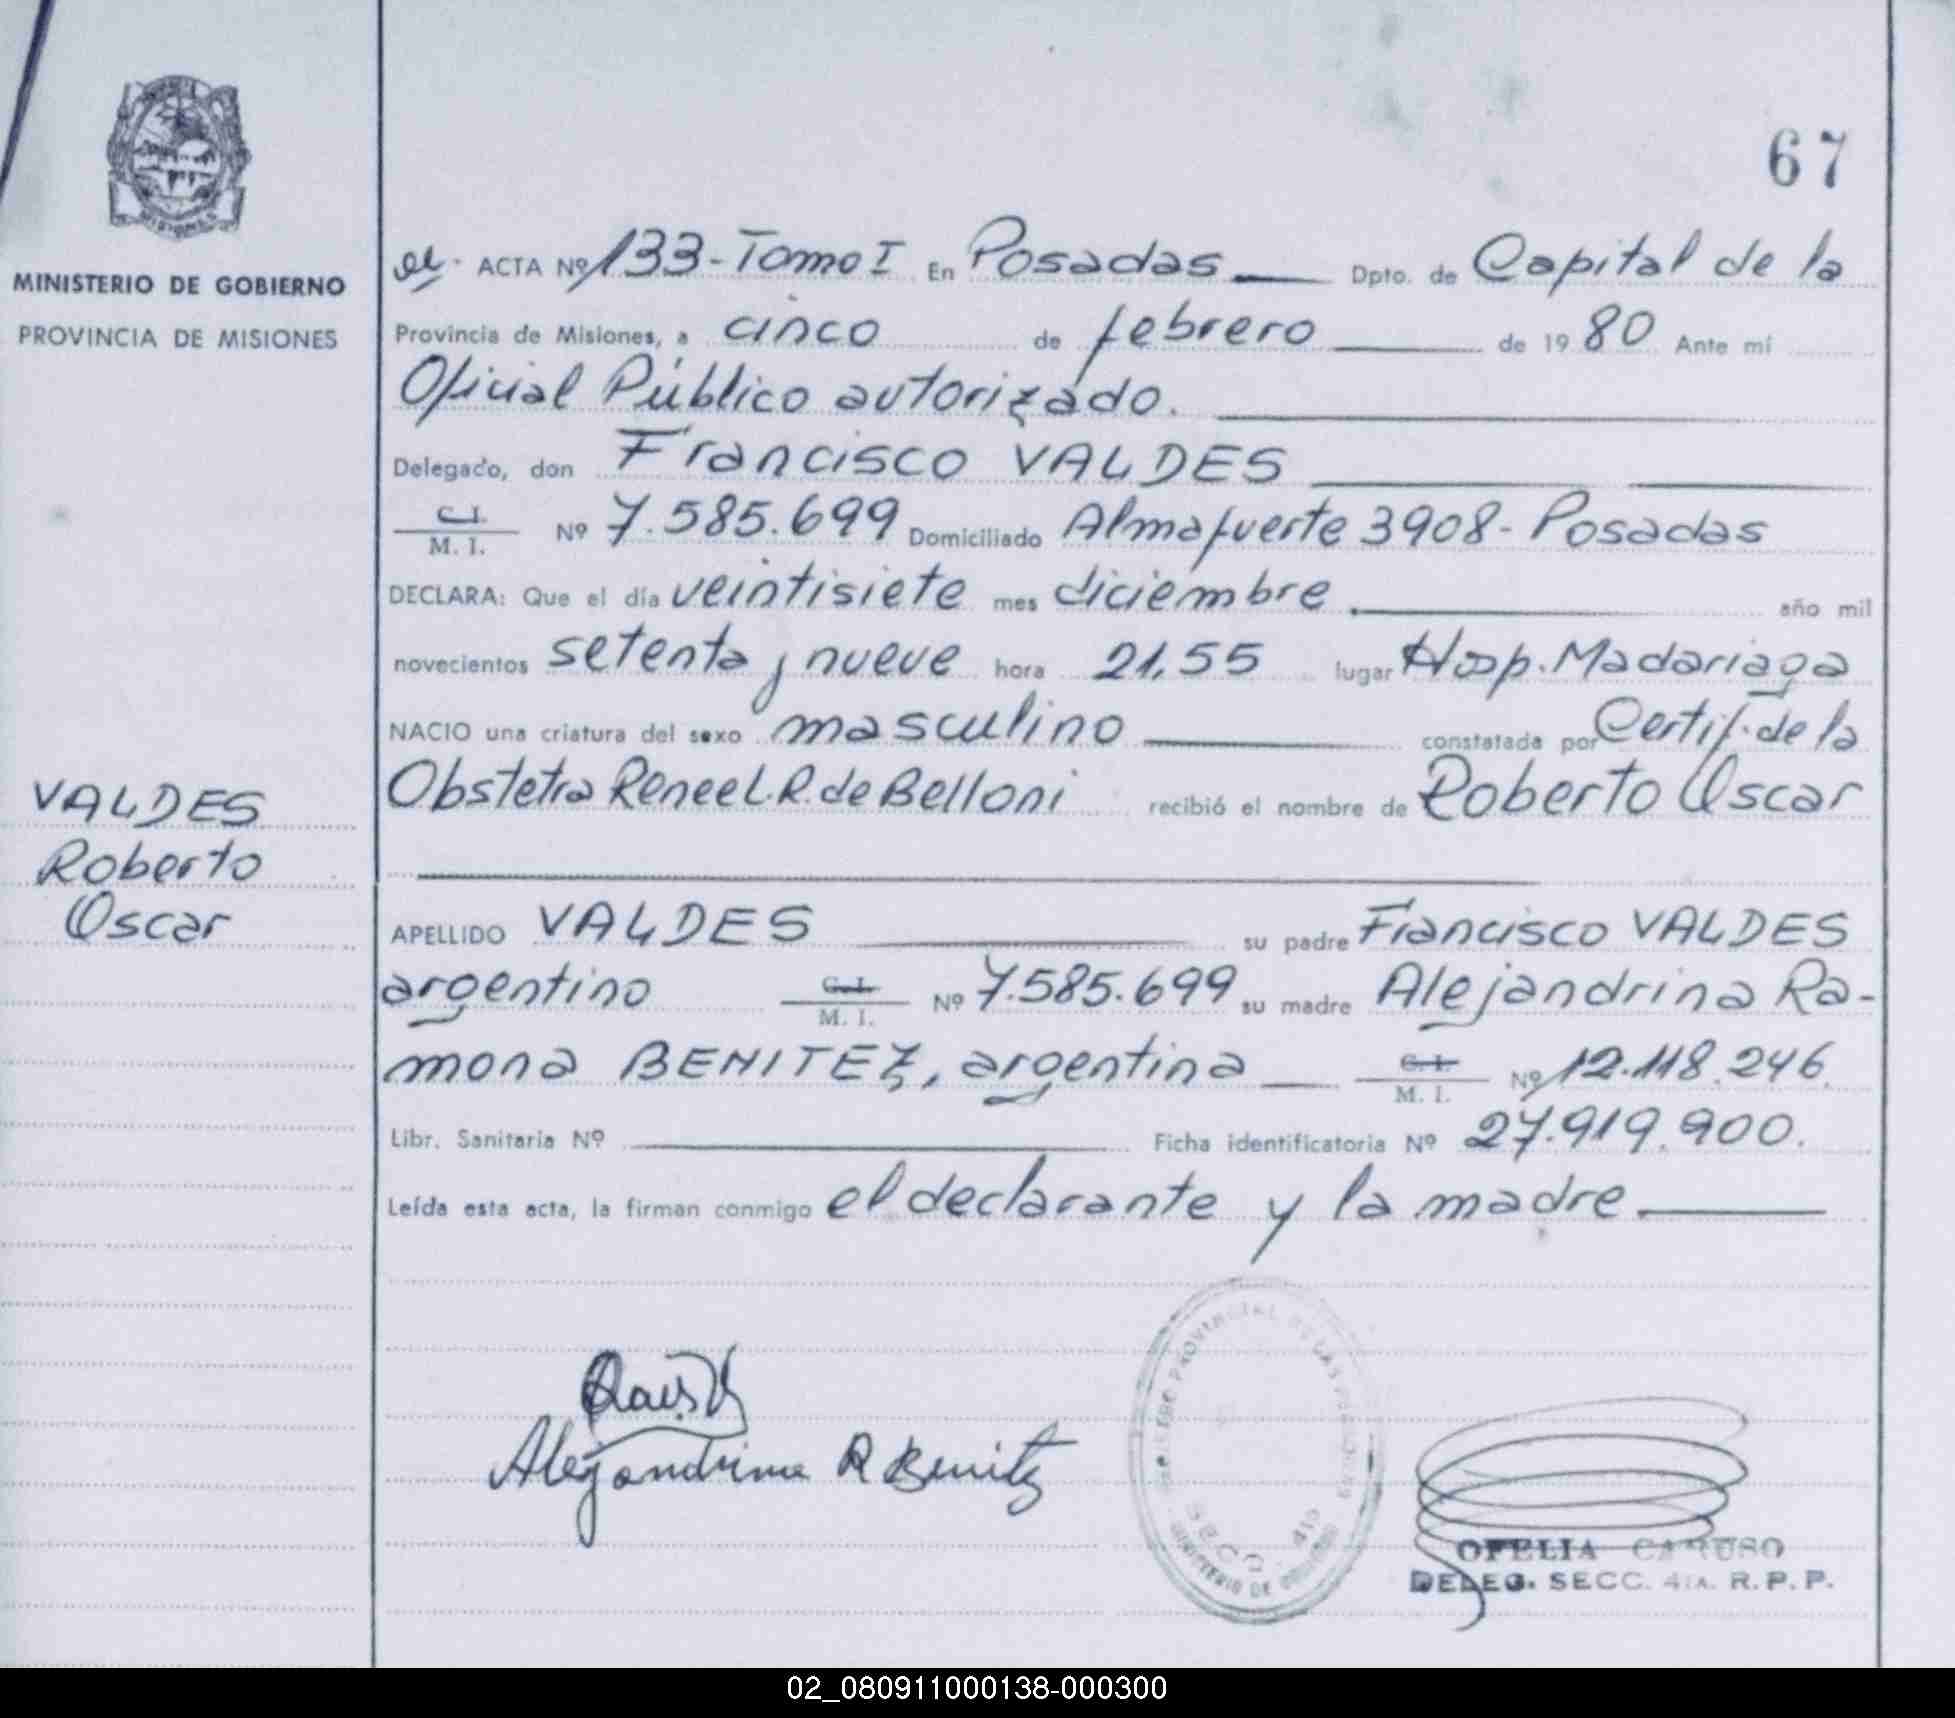 67
MINISTERIO DE GOBIERNO
PROVINCIA DE MISIONES
ACTA Nº 133-Tomo I En Posadas Dpto. de Capital de la
Provincia de Misiones, a cinco de febrero de 1980 Ante mí
Oficial Público autorizado.
Delegado, don Francisco VALDES
C. I.
M. I. Nº 7.585.699 Domiciliado Almafuerte 3908- Posadas
DECLARA: Que el día veintisiete mes diciembre año mil
novecientos setenta y nueve hora 21,55 lugar Hosp. Madariaga
NACIO una criatura del sexo masculino constatada por Certif. de la
Obstetra Renee L. R. de Belloni recibió el nombre de Roberto Oscar
VALDES
Roberto
Oscar
APELLIDO VALDES su padre Francisco VALDES
argentino C. I.
M. I. Nº 7.585.699 su madre Alejandrina Ra-
mona BENITEZ, argentina C. I.
M. I. Nº 12.118.246
Libr. Sanitaria Nº Ficha identificatoria Nº 27.919.900.
Leída esta acta, la firman conmigo el declarante y la madre
Alejandrina R Benitez
SECC. 4ta
MINISTERIO DE GOBIERNO
OFELIA CARUSO
DELEG. SECC. 4TA. R. P. P.
02_080911000138-000300